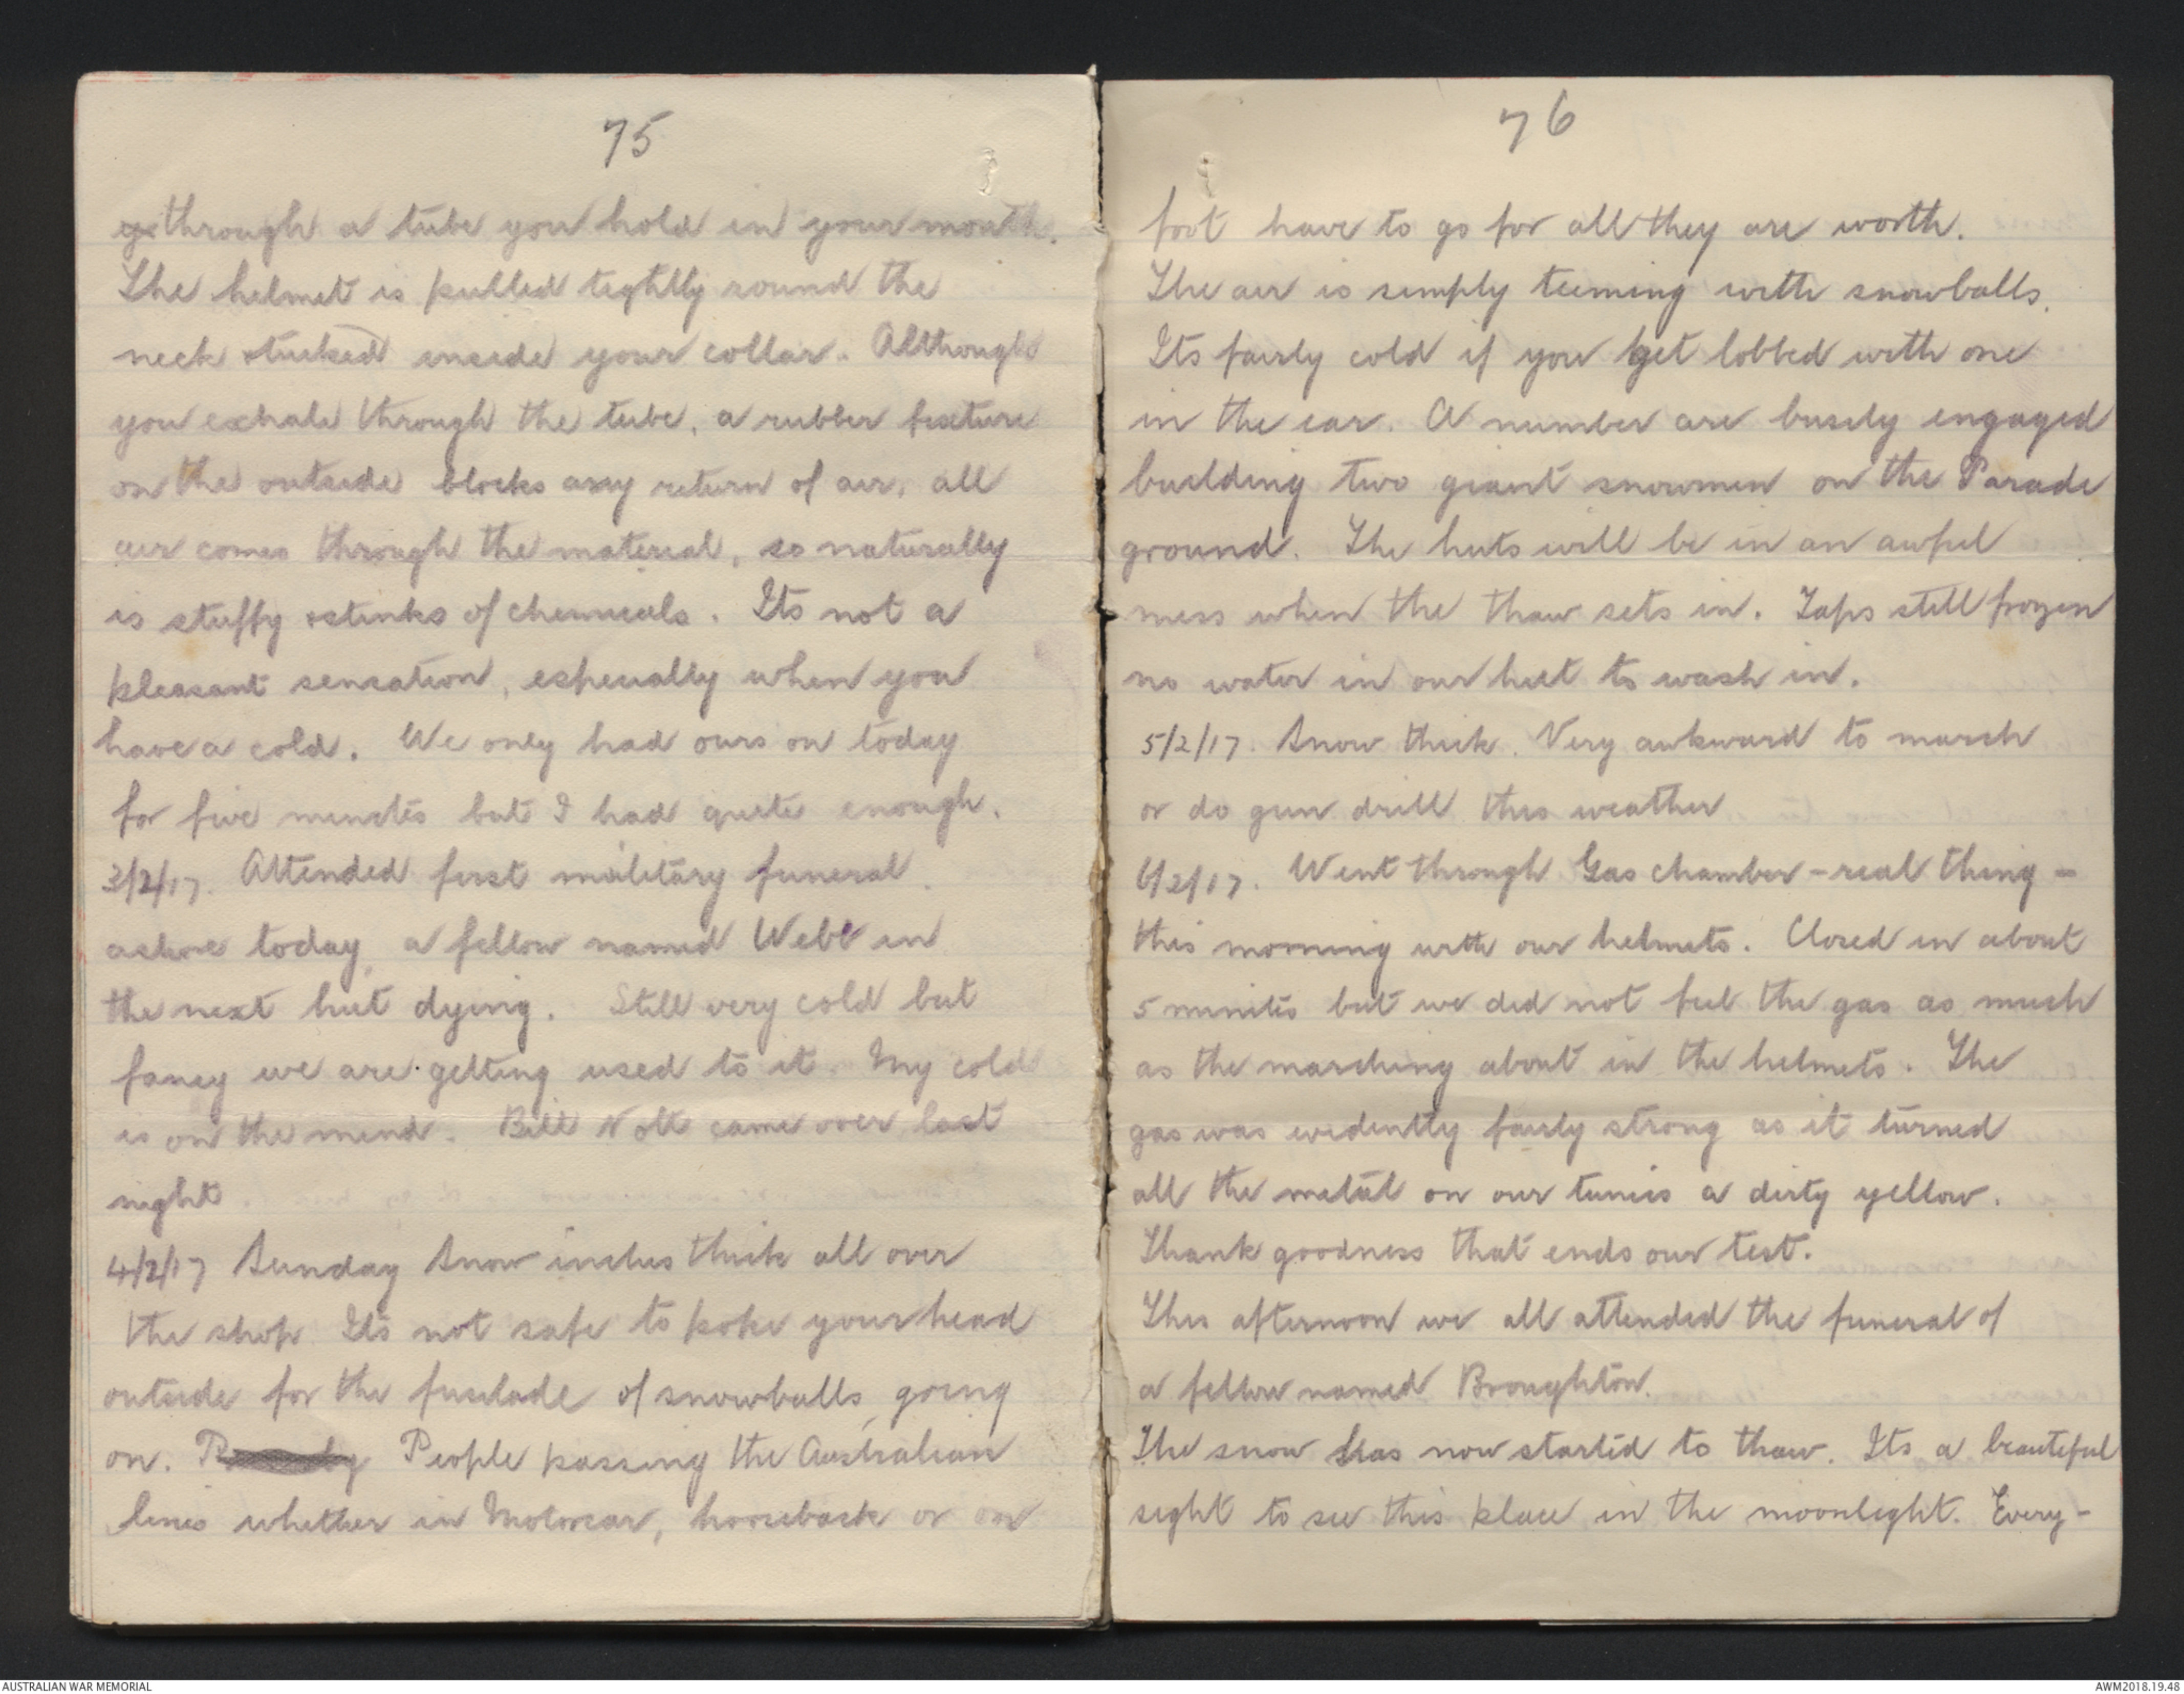 75
through a tube you hold in your mouth.
The helmet is pulled tightly round the
neck & tucked inside your collar. Although
you exhale through the tube, a rubber fixture
on the outside blocks any return of air, all
air comes through the material, so naturally
is stuffy & stinks of chemicals. Its not a
pleasant sensation, especially when you
have a cold. We only had ours on today
for five minutes but I had quite enough.
3/2/17. Attended first military funeral
ashore today, a fellow named Webb in
the next hut dying. Still very cold but
fancy we are getting used to it. My cold
is on the mend. Bill Nott came over last
night.
4/2/17 Sunday Snow inches thick all over
the shop. Its not safe to poke your head
outside for the fusilade of snowballs, going
on. People passing the Australian
lines whether in Motorcar, horseback or on
76
foot have to go for all they are worth.
The air is simply teeming with snowballs.
Its fairly cold if you get lobbed with one
in the ear. A number are busily engaged
building two giant snowmen on the Parade
ground. The huts will be in an awful
mess when the thaw sets in. Taps still frozen
no water in our hut to wash in.
5/2/17. Snow thick. Very awkward to march
or do gun drill this weather
6/2/17. Went through Gas chamber - real thing -
this morning with our helmets. Closed in about
5 minites but we did not feel the gas as much
as the marching about in the helmets. The
gas was evidently fairly strong as it turned
all the metal on our tunics a dirty yellow.
Thank goodness that ends our test.
This afternoon we all attended the funeral of
a fellow named Broughton.
The snow has now started to thaw. Its a beautiful
sight to see this place in the moonlight. Every-
AUSTRALIAN WAR MEMORIAL
AWM2018.19.48